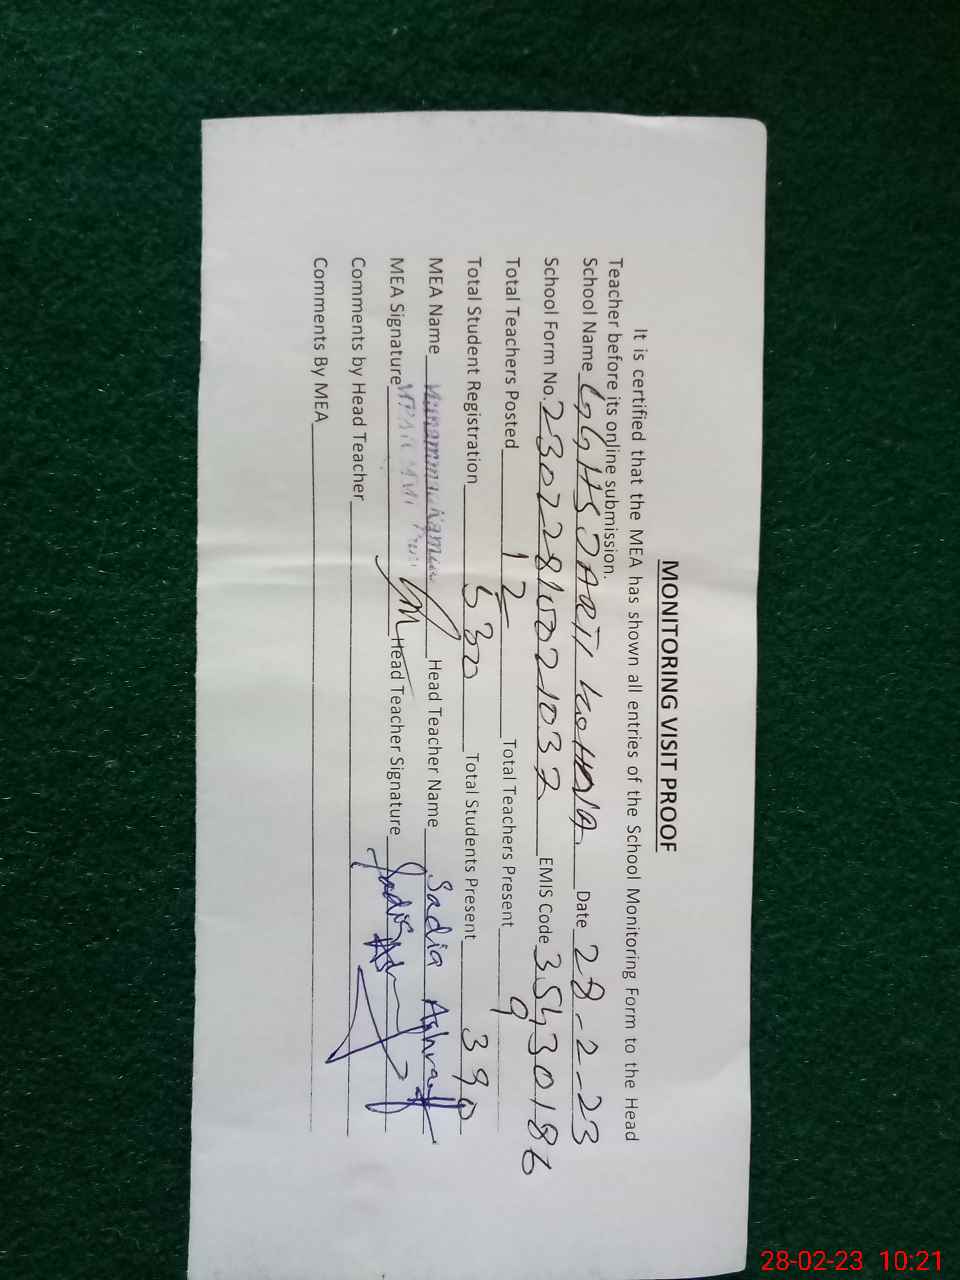 MONITORING VISIT PROOF
It is certified that the MEA has shown all entries of the School Monitoring Form to the Head
Teacher before its online submission.
School Name GGHS KOHNA Date 28-2-23
School Form No. 23022810021037 EMIS Code 35430186
Total Teachers Posted 12 Total Teachers Present 9
Total Student Registration 530 Total Students Present 390
MEA Name Head Teacher Name Sadia Ashraf
MEA Signature Head Teacher Signature Sadia
Comments by Head Teacher
Comments By MEA
28-02-23 10:21